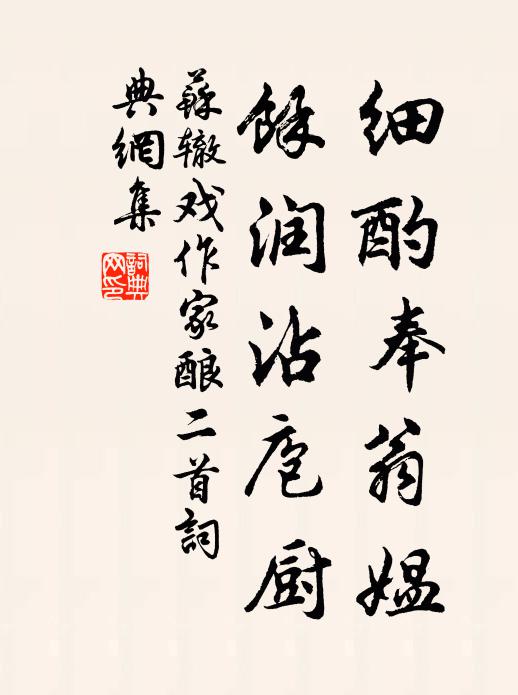 细酌奉翁媼
馀润沾庖厨
蘇辙戏作家酿二首詞
典網集
詞典
网印